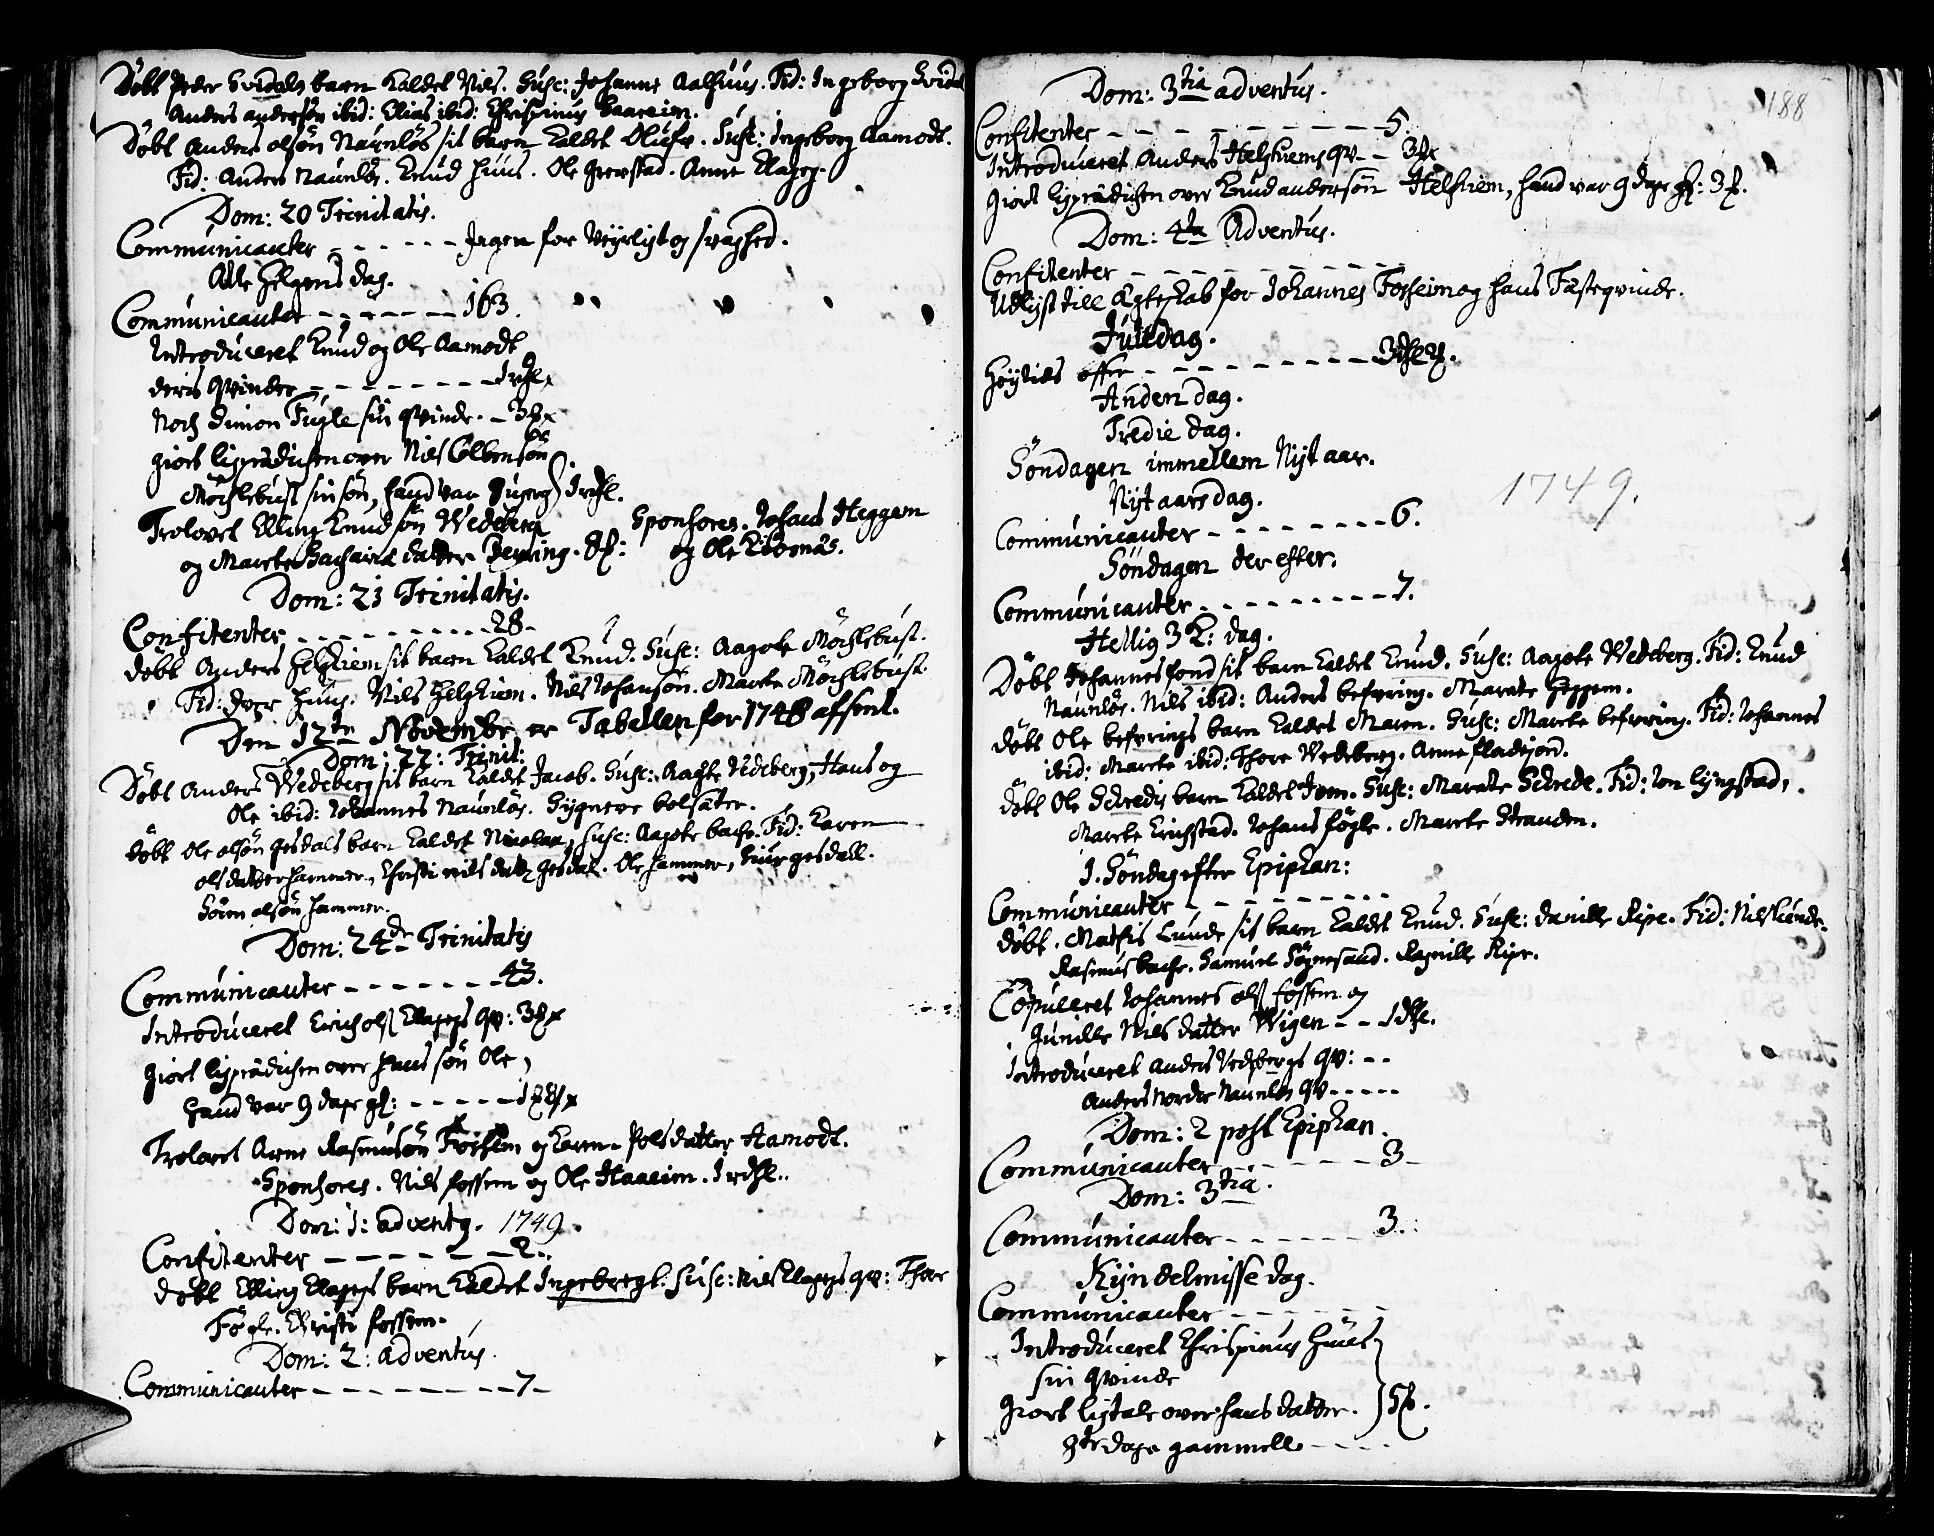 Döbt Peder Svidals barn kaldet Nils. Susc: Johanne Aalhuus. Fid: Ingeborg Svidal
Anders andersøn ibid: Elias ibid: Chrispinus Haaeim.
Döbt Anders olsön Naunlös sit barn kaldet Oluffr. Susc: Ingeborg Aamodt.
Fid: Anders Naunlös. Knud Huus. Ole Grerstad. Anne Klageg.
Dom: 20 Trinitatis.
Communicanter - - - - - - Ingen for Veyrligt og svaghed.
Alle Helgens dag.
Communicanter - - - - - - 163.
Introduceret Knud og Ole Aamodt
deris qvinder - - - - - - - - 1 rdlr
Noch Simon Fugle sin qvinde. - 3
giort ligprædichen over Nils Colbensön
Möchlebust sin sön, hand var 8 uger 1 rdl.
Trolovet Elling Knudsön Wedeberg Sponsores. Johans Heggem
og Marete Zachariæ datter og Ole Kibsnæs.
Dom: 21 Trinitatis.
Confitenter - - - - - - - - - - 28 -
döbt Anders Helgheim sit barn kaldet Knud. Susc: Aagote Möchlebust.
Fid: Huus. Nils Helgheim. Nils Johansön. Marete Möchlebust.
Den 12te Novembr er Tabellen for 1748 afsent.
Dom: 22: Trinit:
Döbt Anders Wedeberg sit barn kaldet Jacob. Susc: Aagote Vedeberg, Hans og
Ole ibid: Johannes Naunlös. Sygneve bolsäter.
döbt Ole olsön gesdals barn kaldet Nicolaa, Susc: Aagote bache. Fid: Karen
olsdatter hammer, Christi nils datt gesdal. Ole hammer, Siur gesdall.
Sören olsön hammer.
Dom: 24de Trinitatis
Communicanter - - - - - - - 43.
Introduceret Erich ols Klagegs qv: 3
giort ligprädichen over hans sön Ole,
hand var 9 dage gl: - - - - - 1
Trolovet Arne Rasmusön Fossem og Karen Pols datter Aamodt.
Sponsores. Nils fossem og Ole Haaeim. 1 rdl.
Dom: 1: advent. 1749.
Confitenter - - - - - - 2.
döbt Elling Klagegs barn kaldet Ingebregt. Susc: Nils Klagegs qv: Thore
Fögle. Christi fossem.
Dom: 2: adventus.
Communicanter - - - - - - - - - 7 -
188
Dom: 3tia adventus.
Confitenter - - - - - - - - - - 5.
Introduceret Anders Helgheims qv - - 3
giort ligprädichen over Knud andersön Helgheim, hand var 9 dage gl: 3
Dom: 4ta Adventus.
Confitenter - - - - - - - - - -
Udlyst till Ægteskab for Johannes Fossheim og hans Fæsteqvinde.
Juledag.
Höytids offer - - - - - - - - - 3
Anden dag.
Tredie dag.
Söndagen immellem Nyt aar.
1749.
Nyt aarsdag.
Communicanter - - - - - - - - 6.
Söndagen der efter.
Communicanter - - - - - - - - - 7.
Hellig 3 K: dag.
Döbt Johannes fond sit barn kaldet Knud. Susc: Aagote Wedeberg. Fid: Knud
Naunlös. Nils ibid: Anders befring. Marate Heggem.
döbt Ole befrings barn kaldet Maren. Susc: Marete befring. Fid: Johannes
ibid: Marete ibid: Thore Vedeberg. Anne fladejord.
döbt Ole Schredis barn kaldet Jon. Susc: Marate Schrede. Fid: Jon lyngstad,
Marete Erichstad. Johans fögle. Marete Stranden.
1. Söndag efter Epiphan:
Communicanter - - - - - - - - -
döbt. Mathis Lunde sit barn kaldet Knud. Susc: danille Ripe. Fid: Nils lunde.
Rasmus bache. Samuel Sögnesand. Ragnille Ripe.
Copuleret Johannes ols fossem og
Gunille Nils datter Wigen - - 1 rdl.
Introduceret Anders Vedbergs qv: - -
Anders Norder Naunlös qv - - - - -
Dom: 2 post Epiphan.
Communicanter - - - - - - 3 -
Dom: 3tia.
Communicanter - - - - - - 3.
Kyndelmisse dag.
Communicanter - - - - - -
Introduceret Chrispinus Huus
sin qvinde
giort ligtale over hans datter. 5
8te dage gammell - - - -